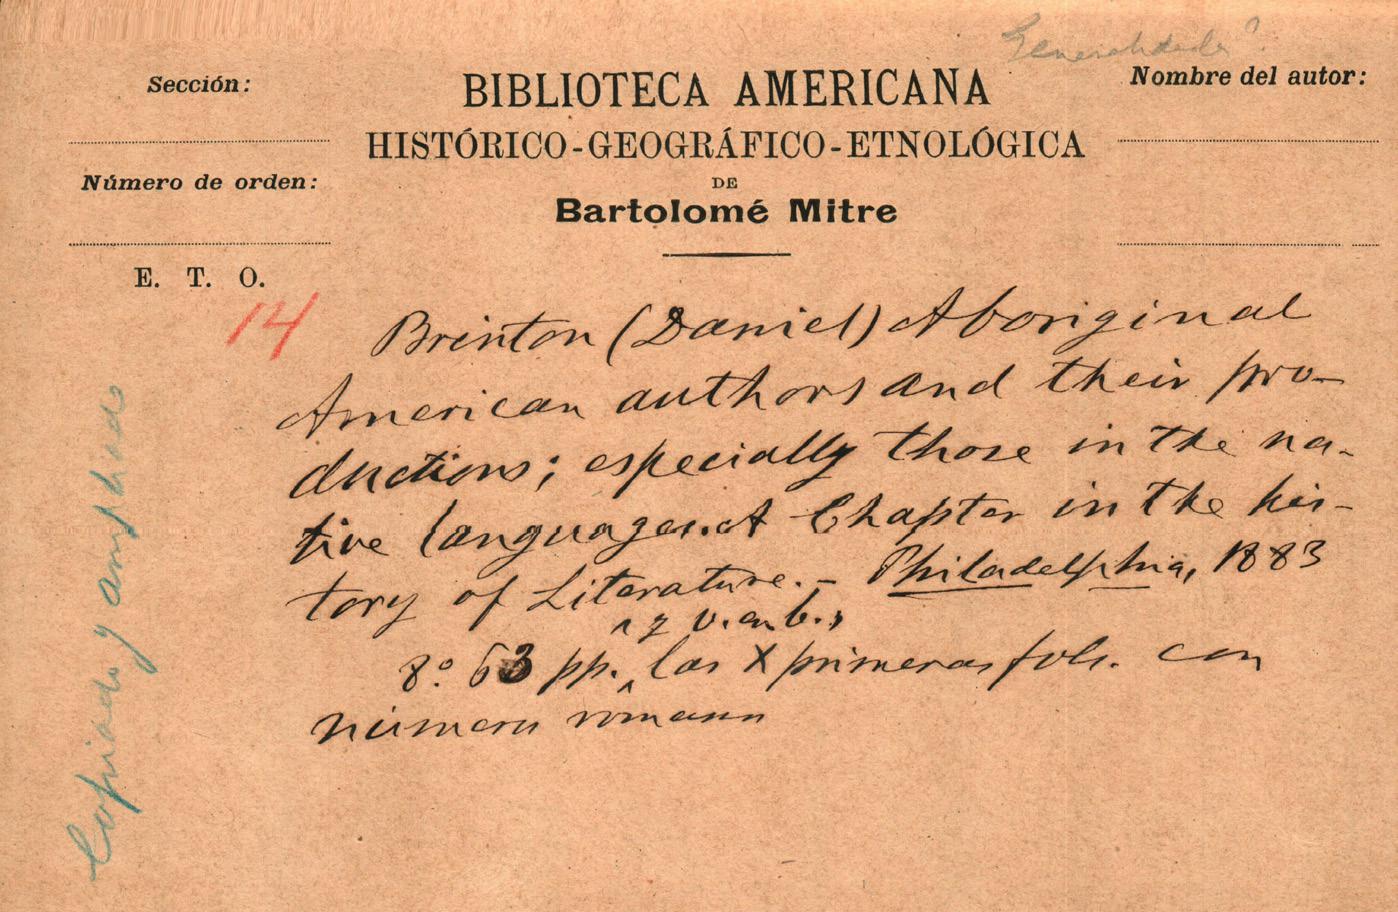 Generalidades?
Sección:
BIBLIOTECA AMERICANA
Nombre del autor:
HISTÓRICO-GEOGRÁFICO-ETNOLÓGICA
Número de orden:
DE
Bartolomé Mitre
E. T. O.
14
Brinton (Daniel) Aboriginal
American authors and their pro-
ductions; especially those in the na-
tive languages. A Chapter in the his-
tory of Literature. - Philadelphia, 1883
y v. en b.,
8º 63 pp. las X primeras fols. con
números romanos
Copiado y ampliado